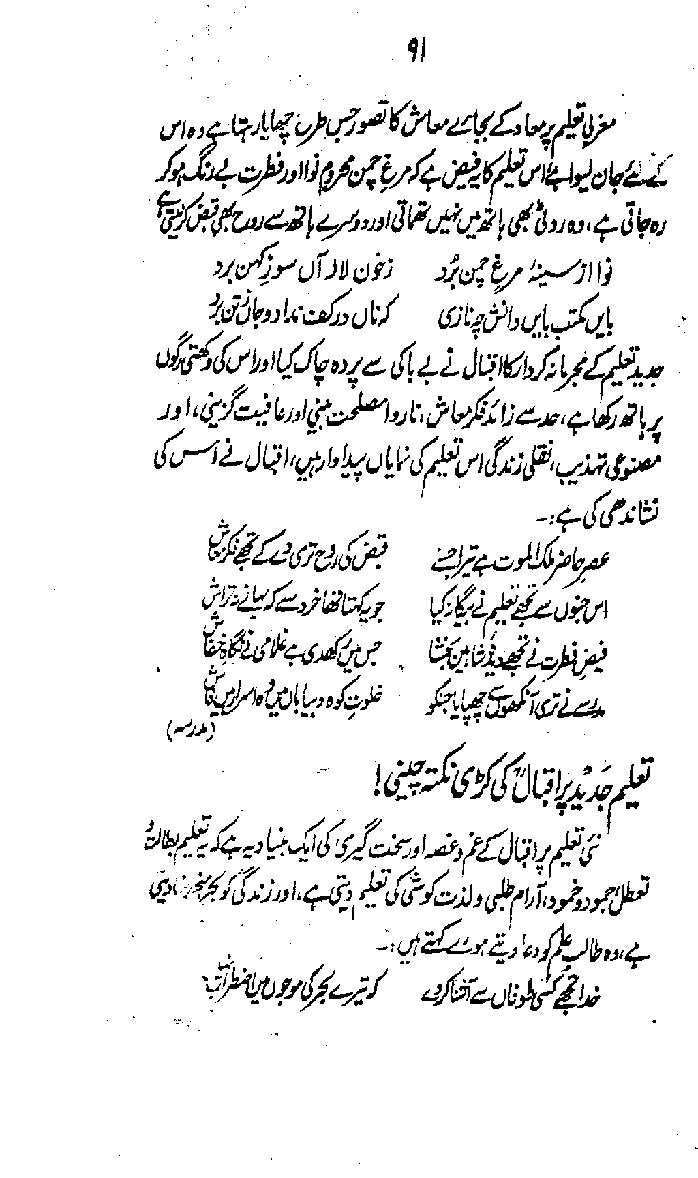 ۹۱
مغربی تعلیم پر معاد کے بجائے معاش کا تصور جس طرح چھایا رہتا ہے وہ اس
کے لئے جان لیوا ہے اس تعلیم کا فیض ہے کہ مرغ چمن محروم نوا اور فطرت بے رنگ ہو کر
رہ جاتی ہے، وہ روٹی بھی ہاتھ میں نہیں تھماتی اور دوسرے ہاتھ سے روح بھی قبض کر لیتی ہے
نوا از سینۂ مرغ چمن برد زخون لالہ آں سوز کہن برد
بایں مکتب بایں دانش چہ نازی کہ ناں در کف نداد و جاں زتن برد
جدید تعلیم کے مجرمانہ کردار کا اقبال نے بے باکی سے پردہ چاک کیا اور اس کی دکھتی رگوں
پر ہاتھ رکھا ہے، حد سے زائد فکر معاش، ناروا مصلحت بینی اور عافیت گزینی، اور
مصنوعی تہذیب، نقلی زندگی اس تعلیم کی نمایاں پیداوار ہیں، اقبال نے اس کی
نشاندھی کی ہے:۔
عصر حاضر ملک الموت ہے تیرا جسنے قبض کی روح تری دے کے تجھے فکر معاش
اس جنوں سے تجھے تعلیم نے بیگانہ کیا جو یہ کہتا تھا خرد سے کہ بہانے نہ تراش
فیض فطرت نے تجھے دیدۂ شاہین بخشا جس میں رکھدی ہے غلامی نے نگاہ خفاش
مدرسے نے تری آنکھوں سے چھپایا جنکو خلوت کوہ و بیاباں میں وہ اسرار ہیں فاش
(مدرسہ)
تعلیم جدید پر اقبالؒ کی کڑی نکتہ چینی!
نئی تعلیم پر اقبال کے غم و غصہ اور سخت گیری کی ایک بنیاد یہ ہے کہ یہ تعلیم بطالت و
تعطل جمود و خمود، آرام طلبی و لذت کوشی کی تعلیم دیتی ہے، اور زندگی کو بحر منجمد بنا دیتی
ہے، وہ طالب علم کو دعا دیتے ہوے کہتے ہیں:۔
خدا تجھے کسی طوفاں سے آشنا کر دے کہ تیرے بحر کی موجوں میں اضطراب نہیں